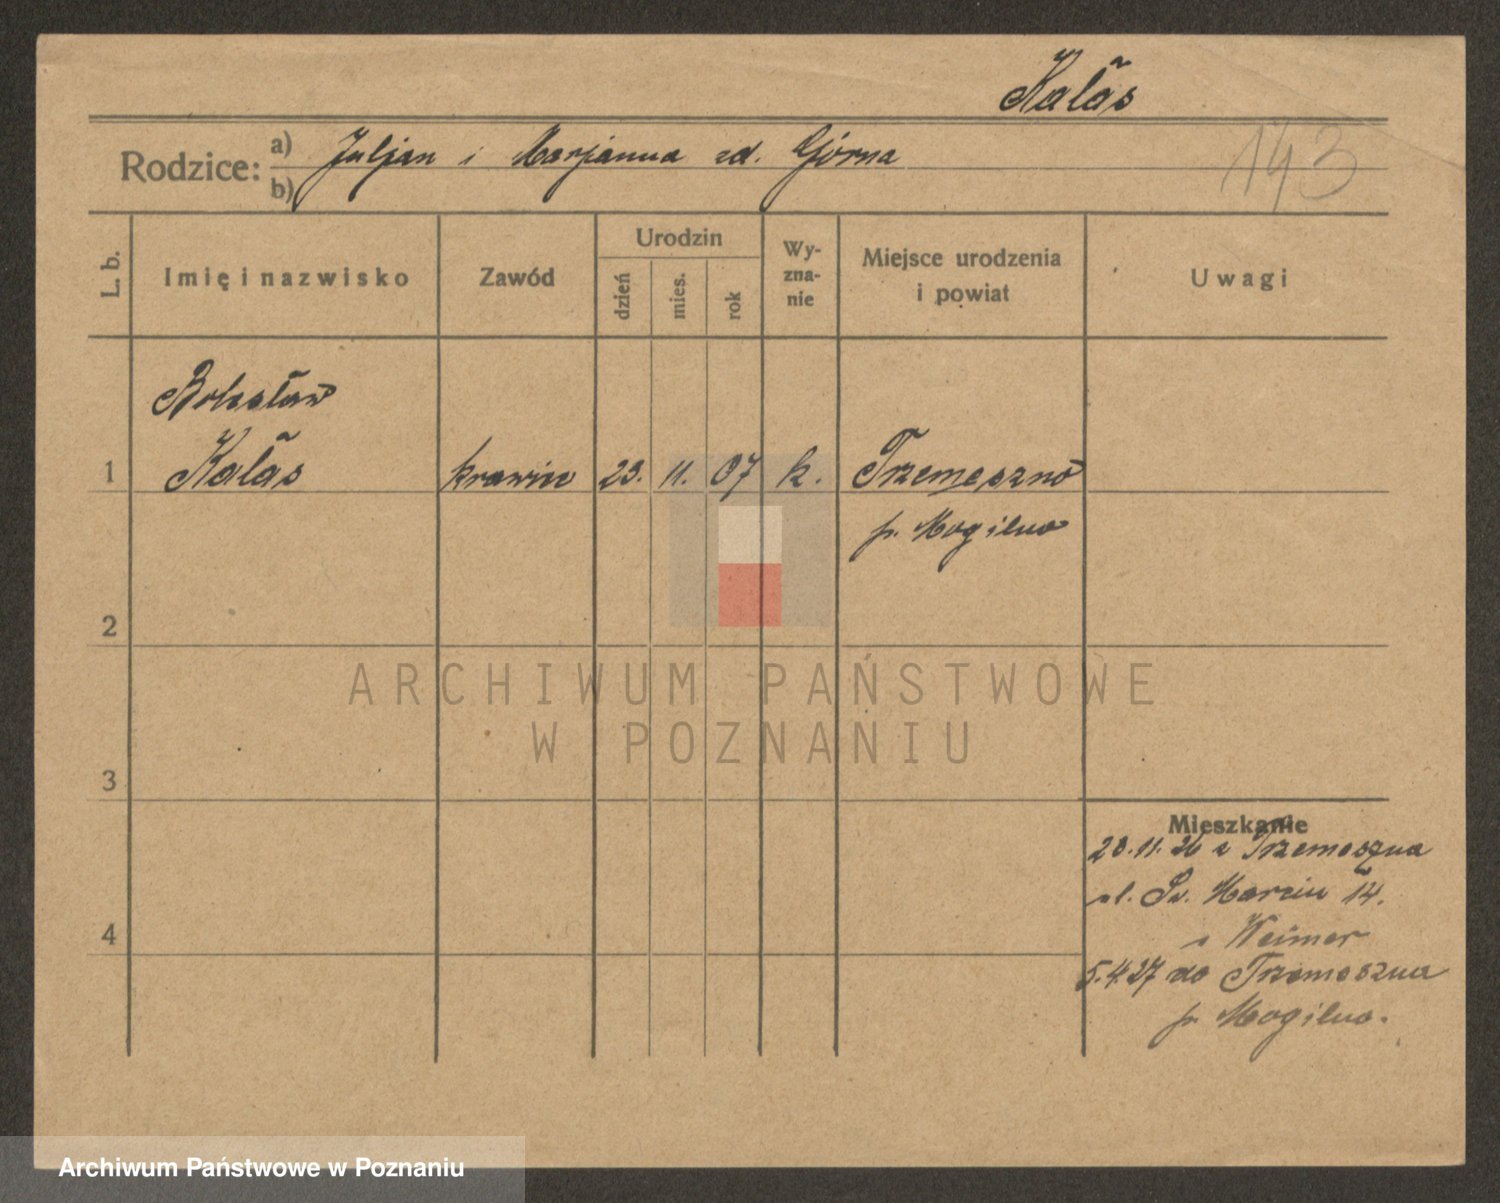 Kałas
Rodzice: a) Juljan i Marjanna zd. Górna
b)
143
L. b.
Imię i nazwisko
Zawód
Urodzin
dzień
mies.
rok
Wy-
zna-
nie
Miejsce urodzenia
i powiat
Uwagi
Bolesław
1 Kałas krawiec 23. 11. 07 k. Trzemeszno
p. Mogilno
2
3
4
ARCHIWUM PAŃSTWOWE
W POZNANIU
Mieszkanie
23.11.26 z Trzemeszna
ul. Św. Marcin 14.
u Weimer
5.4.27 do Trzemeszna
p. Mogilno.
Archiwum Państwowe w Poznaniu